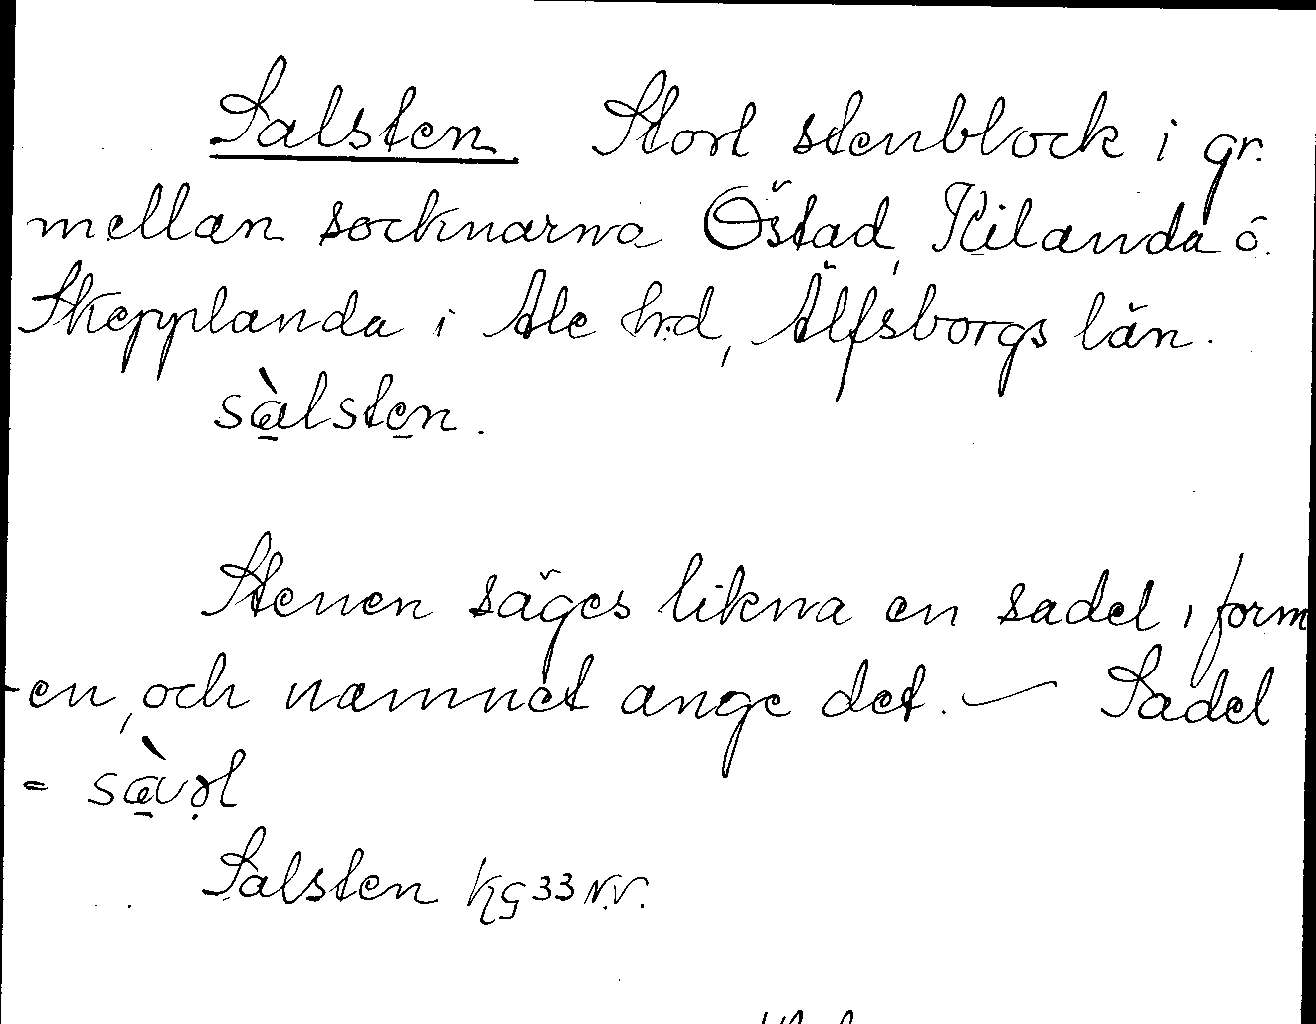 Salsten Stort stenblock i gr.
mellan socknarna Östad, Kilanda o.
Skepplanda i Ale hrd, Älfsborgs län.
sà̱lste̱n.
Stenen säges likna en sadel i form
-en, och namnet ange det. — Sadel
= sà̱vəl
Salsten KG 33 N.V.